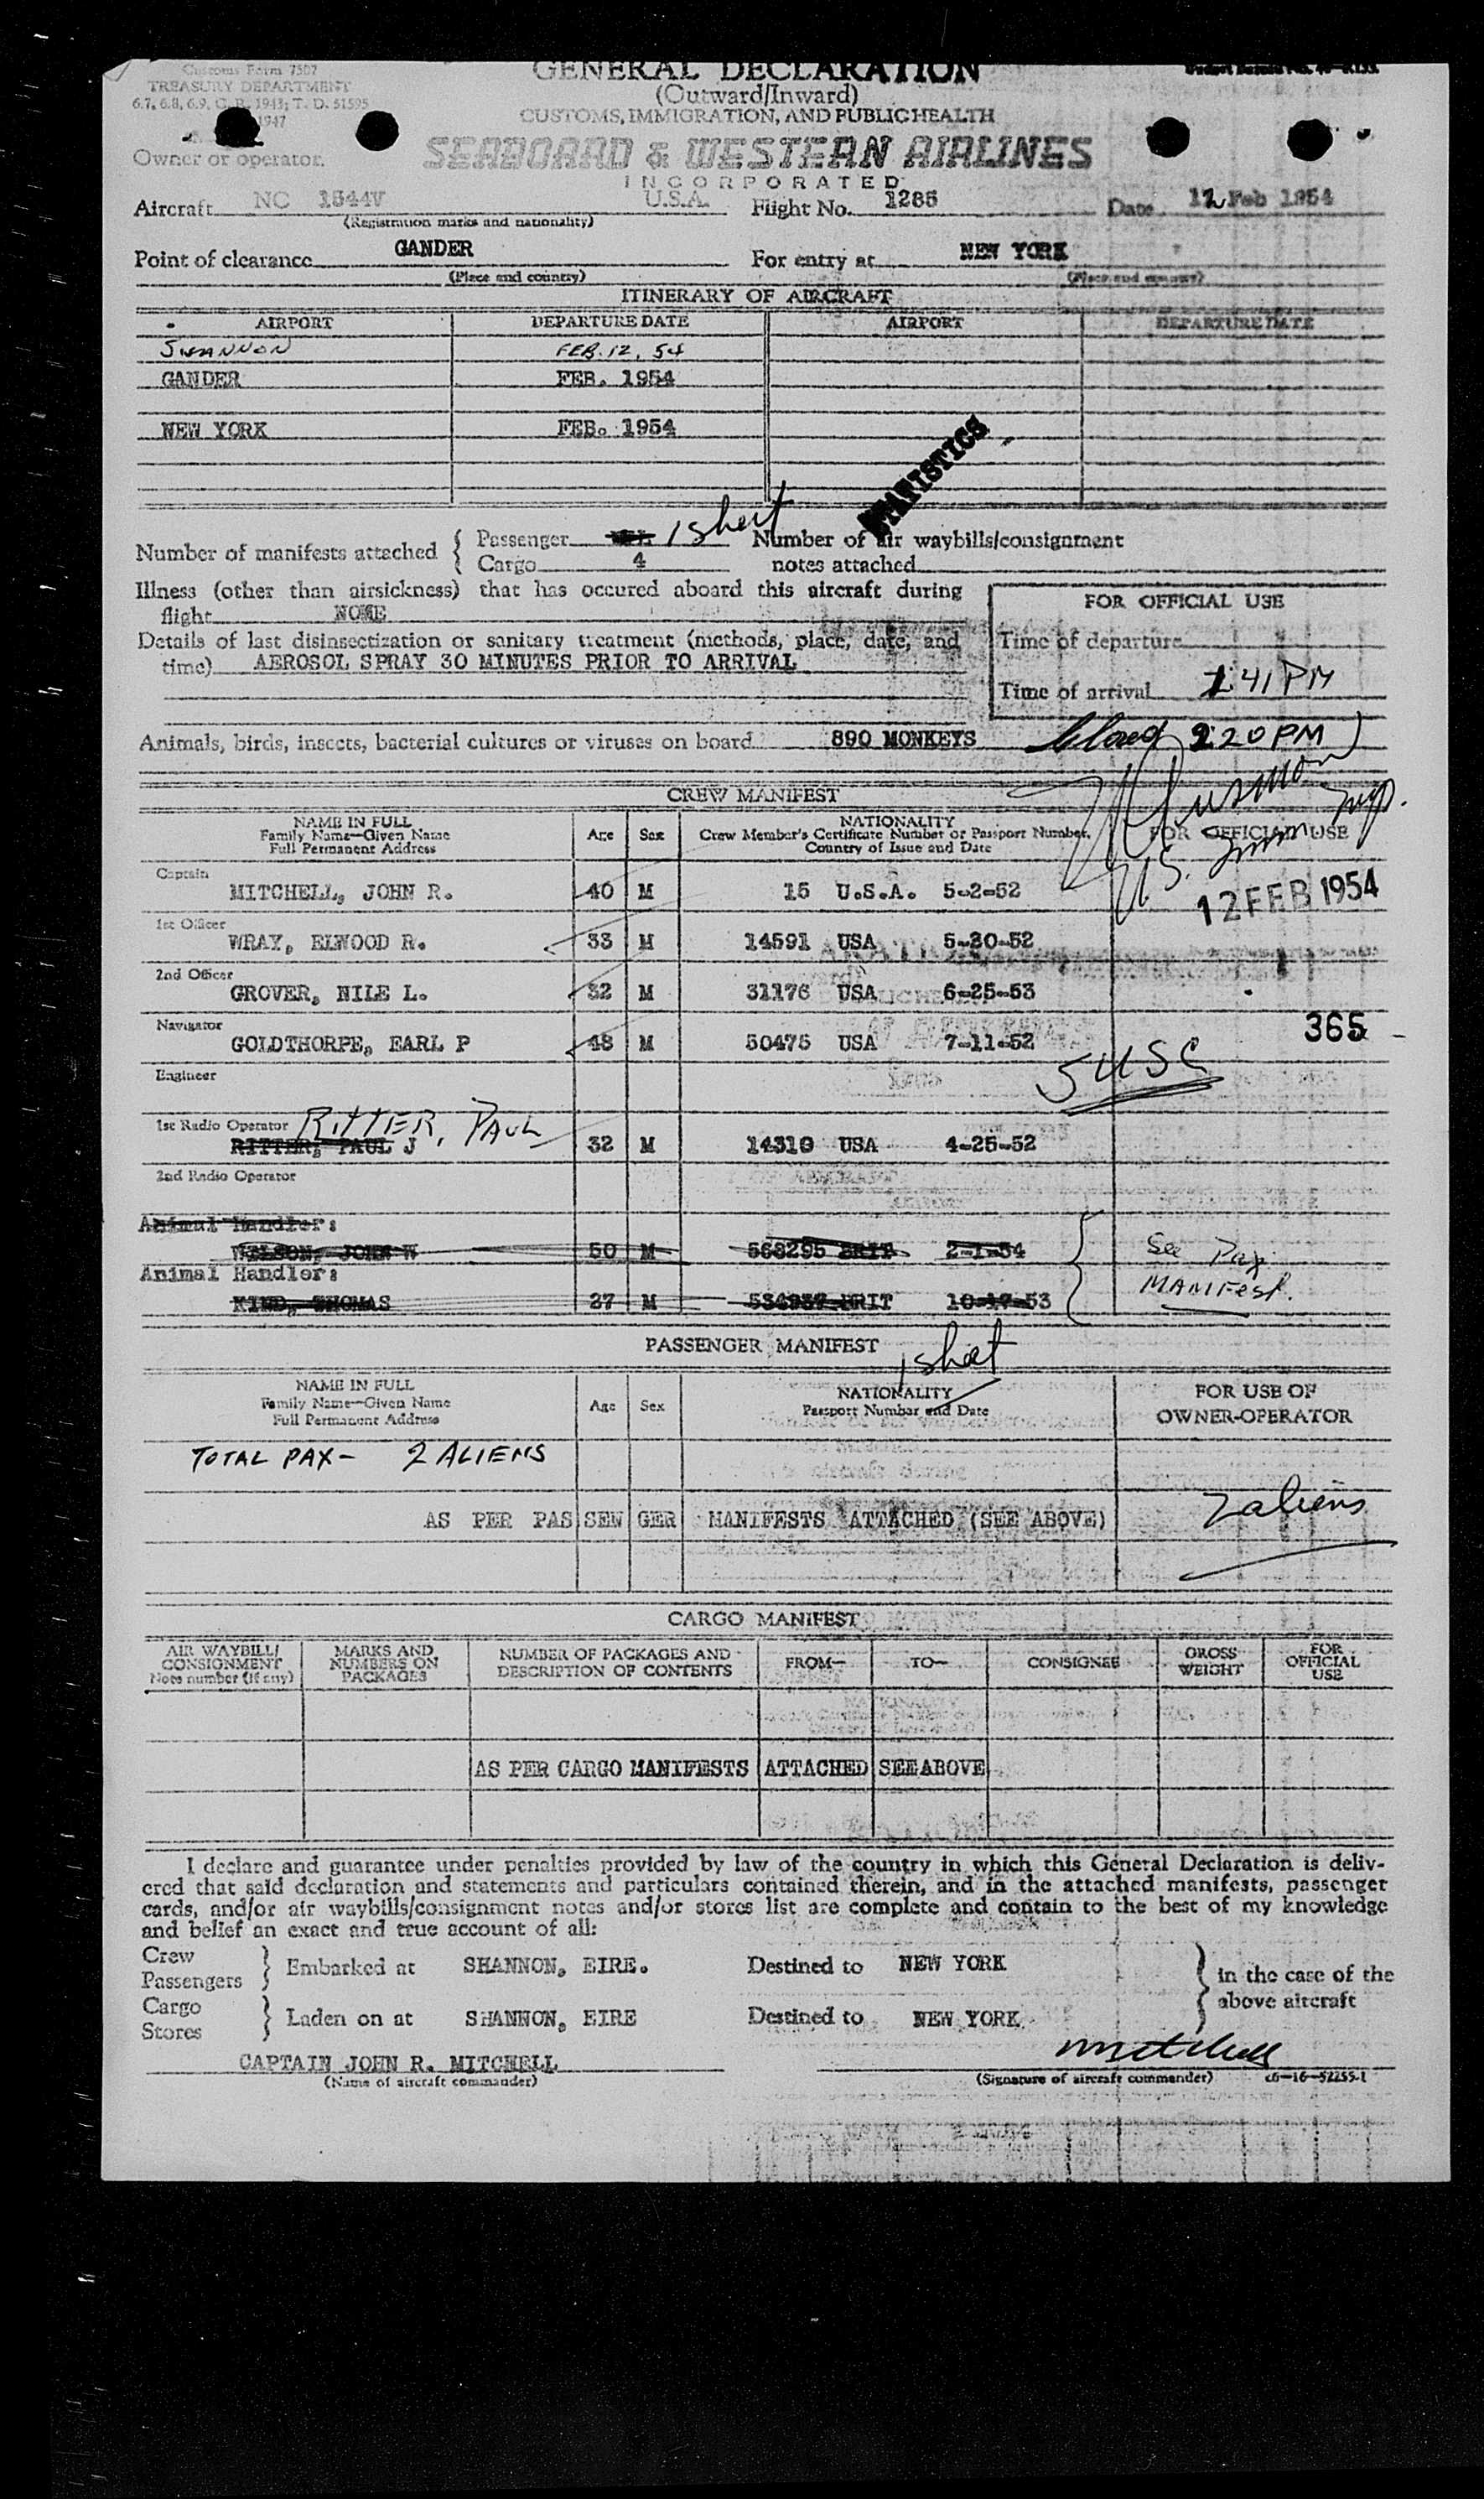 Customs Form 7507
TREASURY DEPARTMENT
6.7, 6.8, 6.9, C. R. 1943; T. D. 51595
1947
GENERAL DECLARATION
(Outward/Inward)
CUSTOMS, IMMIGRATION, AND PUBLIC HEALTH
Owner or operator. SEABOARD & WESTERN AIRLINES
INCORPORATED
Aircraft NC 1544V U.S.A. Flight No. 1285 Date 12 Feb 1954
(Registration marks and nationality)
Point of clearance GANDER For entry at NEW YORK
(Place and country) (Place and country)
ITINERARY OF AIRCRAFT
AIRPORT DEPARTURE DATE AIRPORT DEPARTURE DATE
SHANNON FEB. 12, 54
GANDER FEB. 1954
NEW YORK FEB. 1954
STATISTICS
Number of manifests attached { Passenger 1 sheet Number of air waybills/consignment
Cargo 4 notes attached
Illness (other than airsickness) that has occured aboard this aircraft during
flight NONE
FOR OFFICIAL USE
Details of last disinsectization or sanitary treatment (methods, place, date, and
time) AEROSOL SPRAY 30 MINUTES PRIOR TO ARRIVAL
Time of departure
Time of arrival 1 41 PM
Animals, birds, insects, bacterial cultures or viruses on board 890 MONKEYS
220 PM
CREW MANIFEST
NAME IN FULL
Family Name—Given Name
Full Permanent Address
Age Sex
NATIONALITY
Crew Member's Certificate Number or Passport Number,
Country of Issue and Date
FOR OFFICIAL USE
U.S. Imm Insp.
12 FEB 1954
Captain
MITCHELL, JOHN R. 40 M 15 U.S.A. 5-2-52
1st Officer
WRAY, ELWOOD R. 33 M 14591 USA 5-20-52
2nd Officer
GROVER, NILE L. 32 M 31176 USA 6-25-53
Navigator
GOLDTHORPE, EARL P 48 M 50475 USA 7-11-52
365
5 USC
Engineer
1st Radio Operator RITTER, PAUL
RITTER, PAUL J 32 M 14310 USA 4-25-52
2nd Radio Operator
Animal Handler:
WILSON, JOHN W 50 M 568295 BRIT 2-1-54
Animal Handler:
KIND, THOMAS 27 M 534937 BRIT 10-17-53
See Pax
MANIFest.
PASSENGER MANIFEST 1 sheet
NAME IN FULL
Family Name—Given Name
Full Permanent Address
Age Sex
NATIONALITY
Passport Number and Date
FOR USE OF
OWNER-OPERATOR
TOTAL PAX - 2 ALIENS
AS PER PAS SEN GER MANIFESTS ATTACHED (SEE ABOVE) 2 aliens
CARGO MANIFEST
AIR WAYBILL/
CONSIGNMENT
Note number (if any)
MARKS AND
NUMBERS ON
PACKAGES
NUMBER OF PACKAGES AND
DESCRIPTION OF CONTENTS
FROM— TO— CONSIGNEE
GROSS
WEIGHT
FOR
OFFICIAL
USE
AS PER CARGO MANIFESTS ATTACHED SEE ABOVE
I declare and guarantee under penalties provided by law of the country in which this General Declaration is deliv-
ered that said declaration and statements and particulars contained therein, and in the attached manifests, passenger
cards, and/or air waybills/consignment notes and/or stores list are complete and contain to the best of my knowledge
and belief an exact and true account of all:
Crew
Passengers } Embarked at SHANNON, EIRE. Destined to NEW YORK
Cargo
Stores } Laden on at SHANNON, EIRE Destined to NEW YORK
} in the case of the
above aircraft
CAPTAIN JOHN R. MITCHELL
(Name of aircraft commander)
Mitchell
(Signature of aircraft commander) c6—16—52255-1